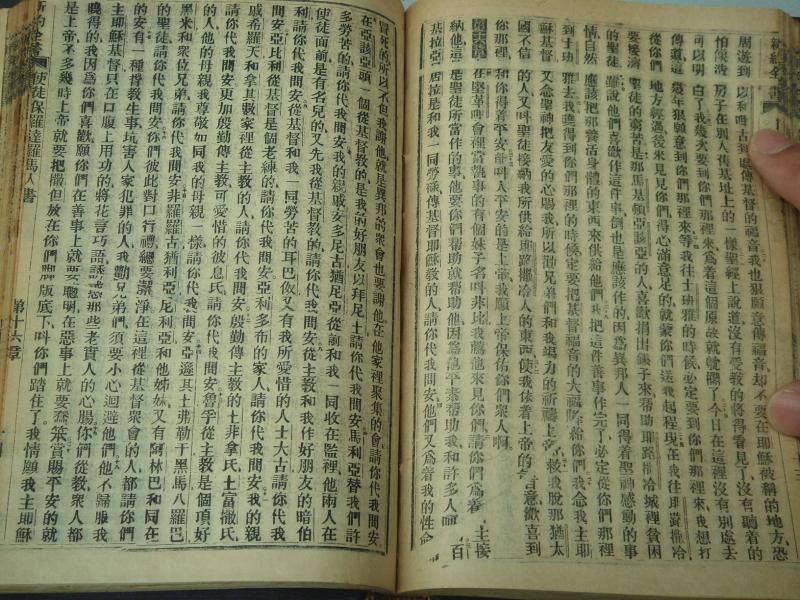 新約全書
周遊到以利哩古到處傳基督的福音我也狠願意傳福音却不要在耶穌被稱的地方恐
怕像凌房子在別人舊基址上的一樣聖經上說道沒有受教的將得看見了沒有聽着的
可以明白了我幾次要到你們那裡來爲着這個原故就躭擱了今日在這裡沒有別處去
傳道這幾年狠願意到你們那裡來等我往士班雅的時候必定要到你們那裡來我想打
從你們地方經過後來見見你們得心滿意足的就蒙你們送我起程現在我往耶路撒冷
要接濟聖徒的窮苦是那馬基頓亞該亞的人喜歡捐出銀子來帮助耶路撒冷城裡貧困
的聖徒雖說他們喜歡作這件事倒也是應該作的因爲異邦人一同得着聖神感動的事
情自然應該把那養活身體的東西來供給他們我把這件善事作完了必定從你們那裡
到士班雅去我曉得到你們那裡的時候定要把基督福音的大福
穌基督又念聖神把友愛的心腸我所以勸兄弟們和我竭力的祈禱上帝 救我脫那猶太
國不信的人又叫聖徒接納我所供給耶路撒冷人的東西使我依着上帝的 音意歡喜到
你那裡和你得着平安能叫人平安的是上帝我願上帝保佑你們衆人啊
第十六章 在堅革哩會裡當執事的有個妹子名叫非比我薦他來見你們請你們爲着 主接
納他這是聖徒所當作的事他要你們帮助就帮他因爲他平素帮助我和許多人 百
基拉亞居拉是和我一同勞碌傳基督耶穌教的人請你代我問安他們又爲着我的性命
冒死的所以不但我謝他就是異邦的衆會也要謝他在他家裡聚集的會請你代我問安
在亞該亞頭一個從基督教的是我的好朋友以拜尼士請你代我問安馬利亞替我們許
多勞苦的請你代我問安我的親戚安多尼古猶尼亞從前和我一同收在監裡他兩人在
使徒面前是有名兒的又先我從基督教的請你代我問安從主教和我作好朋友的暗伯
利請你代我問安從基督和我一同勞苦的耳巴伋又有我所愛惜的人士大古請你代我
問安亞比利從基督是個老練的請你代我問安亞利多布的家人請你代我問安我的親
戚希羅天和拿其數家裡從主教的人請你代我問安殷勤傳主教的土非拿氏土富撒氏
請你代我問安更加殷勤傳主教可愛惜的彼息氏請你代我問安魯孚從主教是個頂好
的人他的母親我尊敬如同我的母親一樣請你代我問安亞遜其士弗勒干黑馬八羅巴
黑米和衆位兄弟請你代我問安非羅羅古猶利亞尼利亞和他姊妹又有阿林巴和同在
的聖徒請你代我問安你們彼此對口行禮總要潔淨在這裡從基督衆會的人都請你們
的安有一種背教生事坑害人家犯罪的人我勸兄弟們須要小心迴避他們他不歸服我
主耶穌基督只在口腹上用功的將花言巧語誘惑那些老實人的心腸你們從教衆人都
曉得的我因爲你們喜歡願你們在善事上就要聰明在惡事上就要蠢笨賞賜平安的就
是上帝不多幾時上帝就要把撒但放在你們脚版底下叫你們踏住了我情願我主耶穌
新約全書 使徒保羅達羅馬人書 第十六章